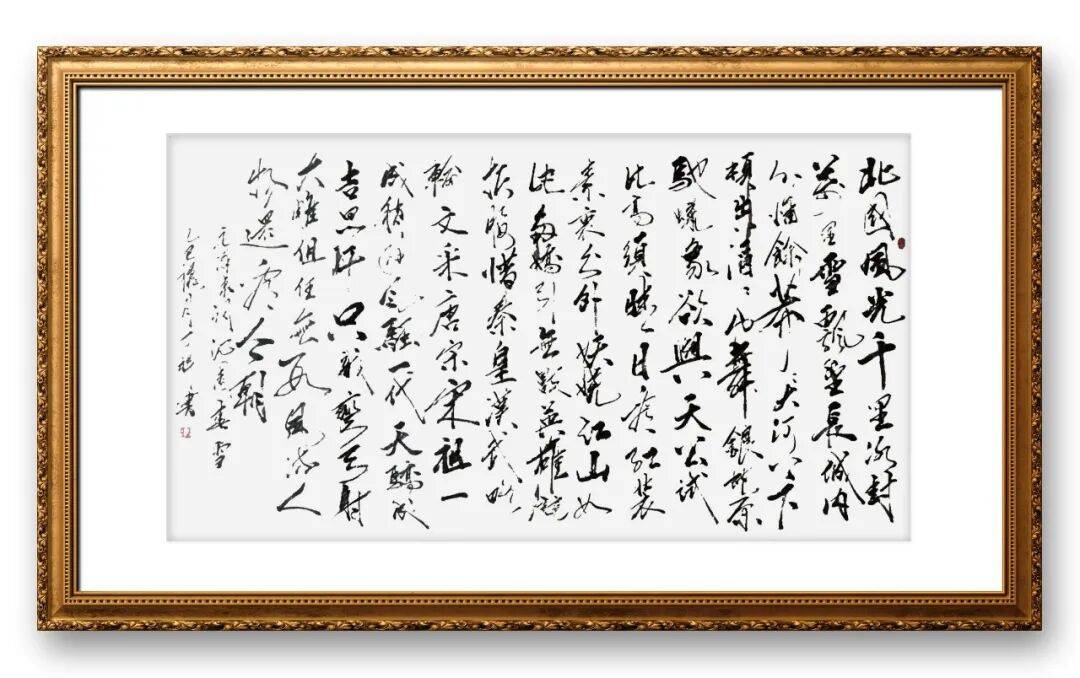 北國風光千里冰封
萬里雪飄望長城内
外惟餘莽々大河上下
頓失滔々山舞銀蛇原
馳蠟象欲與天公試
比高須晴日看紅裝
素裹分外妖嬈江山如
此多嬌引無數英雄競
折腰惜秦皇漢武略
輸文采唐宗宋祖一
稍遜風騷一代天驕成
吉思汗只識彎弓射
大雕俱往數風流人
物還看今朝
毛澤東詞沁園春雪
乙巳月書